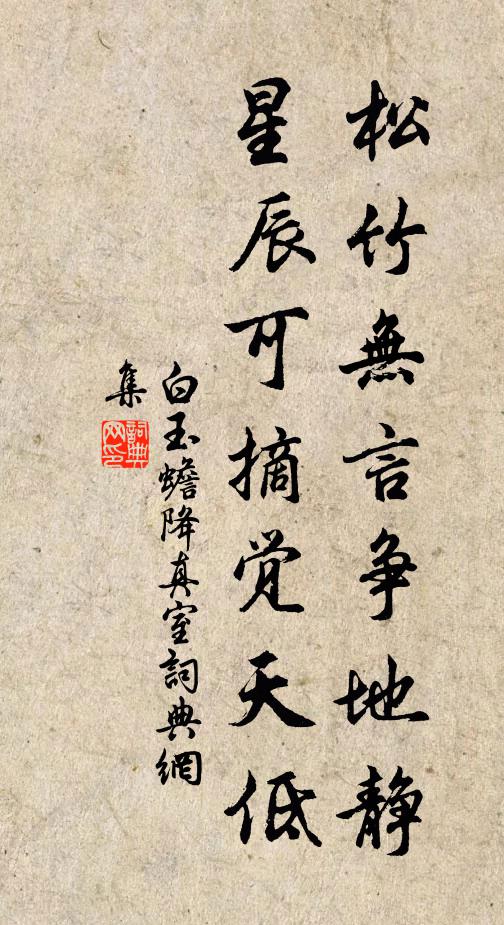 松竹無言争地静
星辰可摘觉天低
白玉蟾降真室詞典網
集
詞典网印